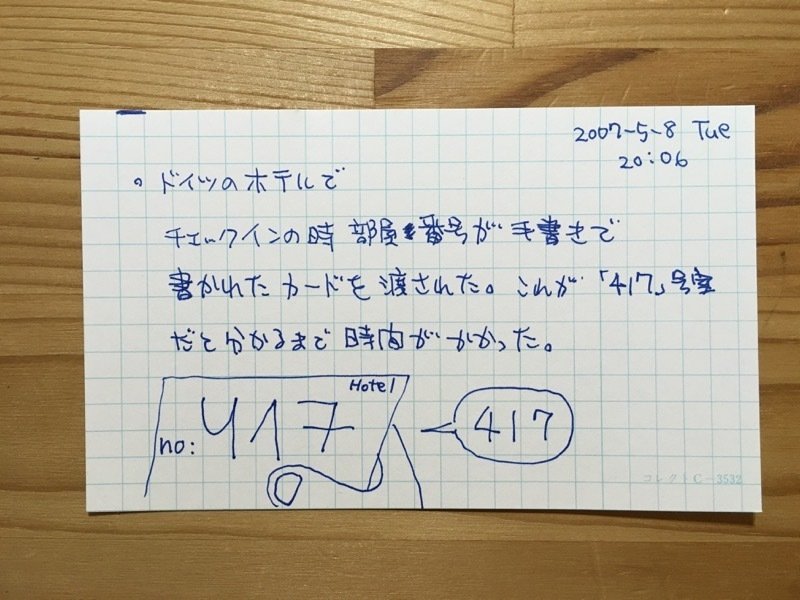 2007-5-8 Tue
20:06
。ドイツのホテルで
チェックインの時 部屋番号が手書きで
書かれたカードを渡された。これが「417」号室
だと分かるまで時間がかかった。
Hotel
no: 417
417
コレクト C-3532